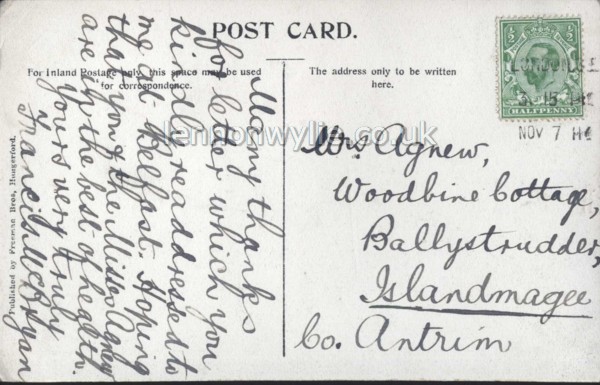 POST CARD.
For Inland Postage only, this space may be used
for correspondence.
The address only to be written
here.
Many thanks
for letter which you
kindly readdressed to
me at Belfast. Hoping
that you & the Misses Agnew
are in the best of health.
Yours very truly
Francis McBryan
Mrs. Agnew,
Woodbine Cottage,
Ballystrudder,
Islandmagee
Co. Antrim
HALFPENNY
3. 15 PM
NOV 7
Published by Freeman Bros, Hungerford.
lennonwylie.co.uk